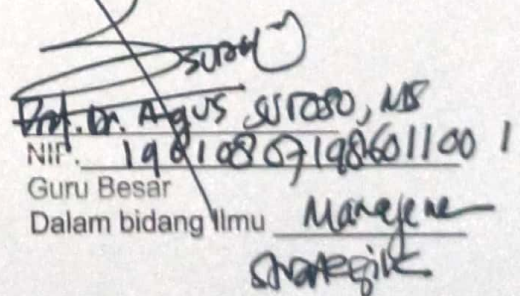 Prof. Dr. Agus Suroso, MS
NIP. 19610807198601100 1
Guru Besar
Dalam bidang Ilmu Manajemen
Strategik